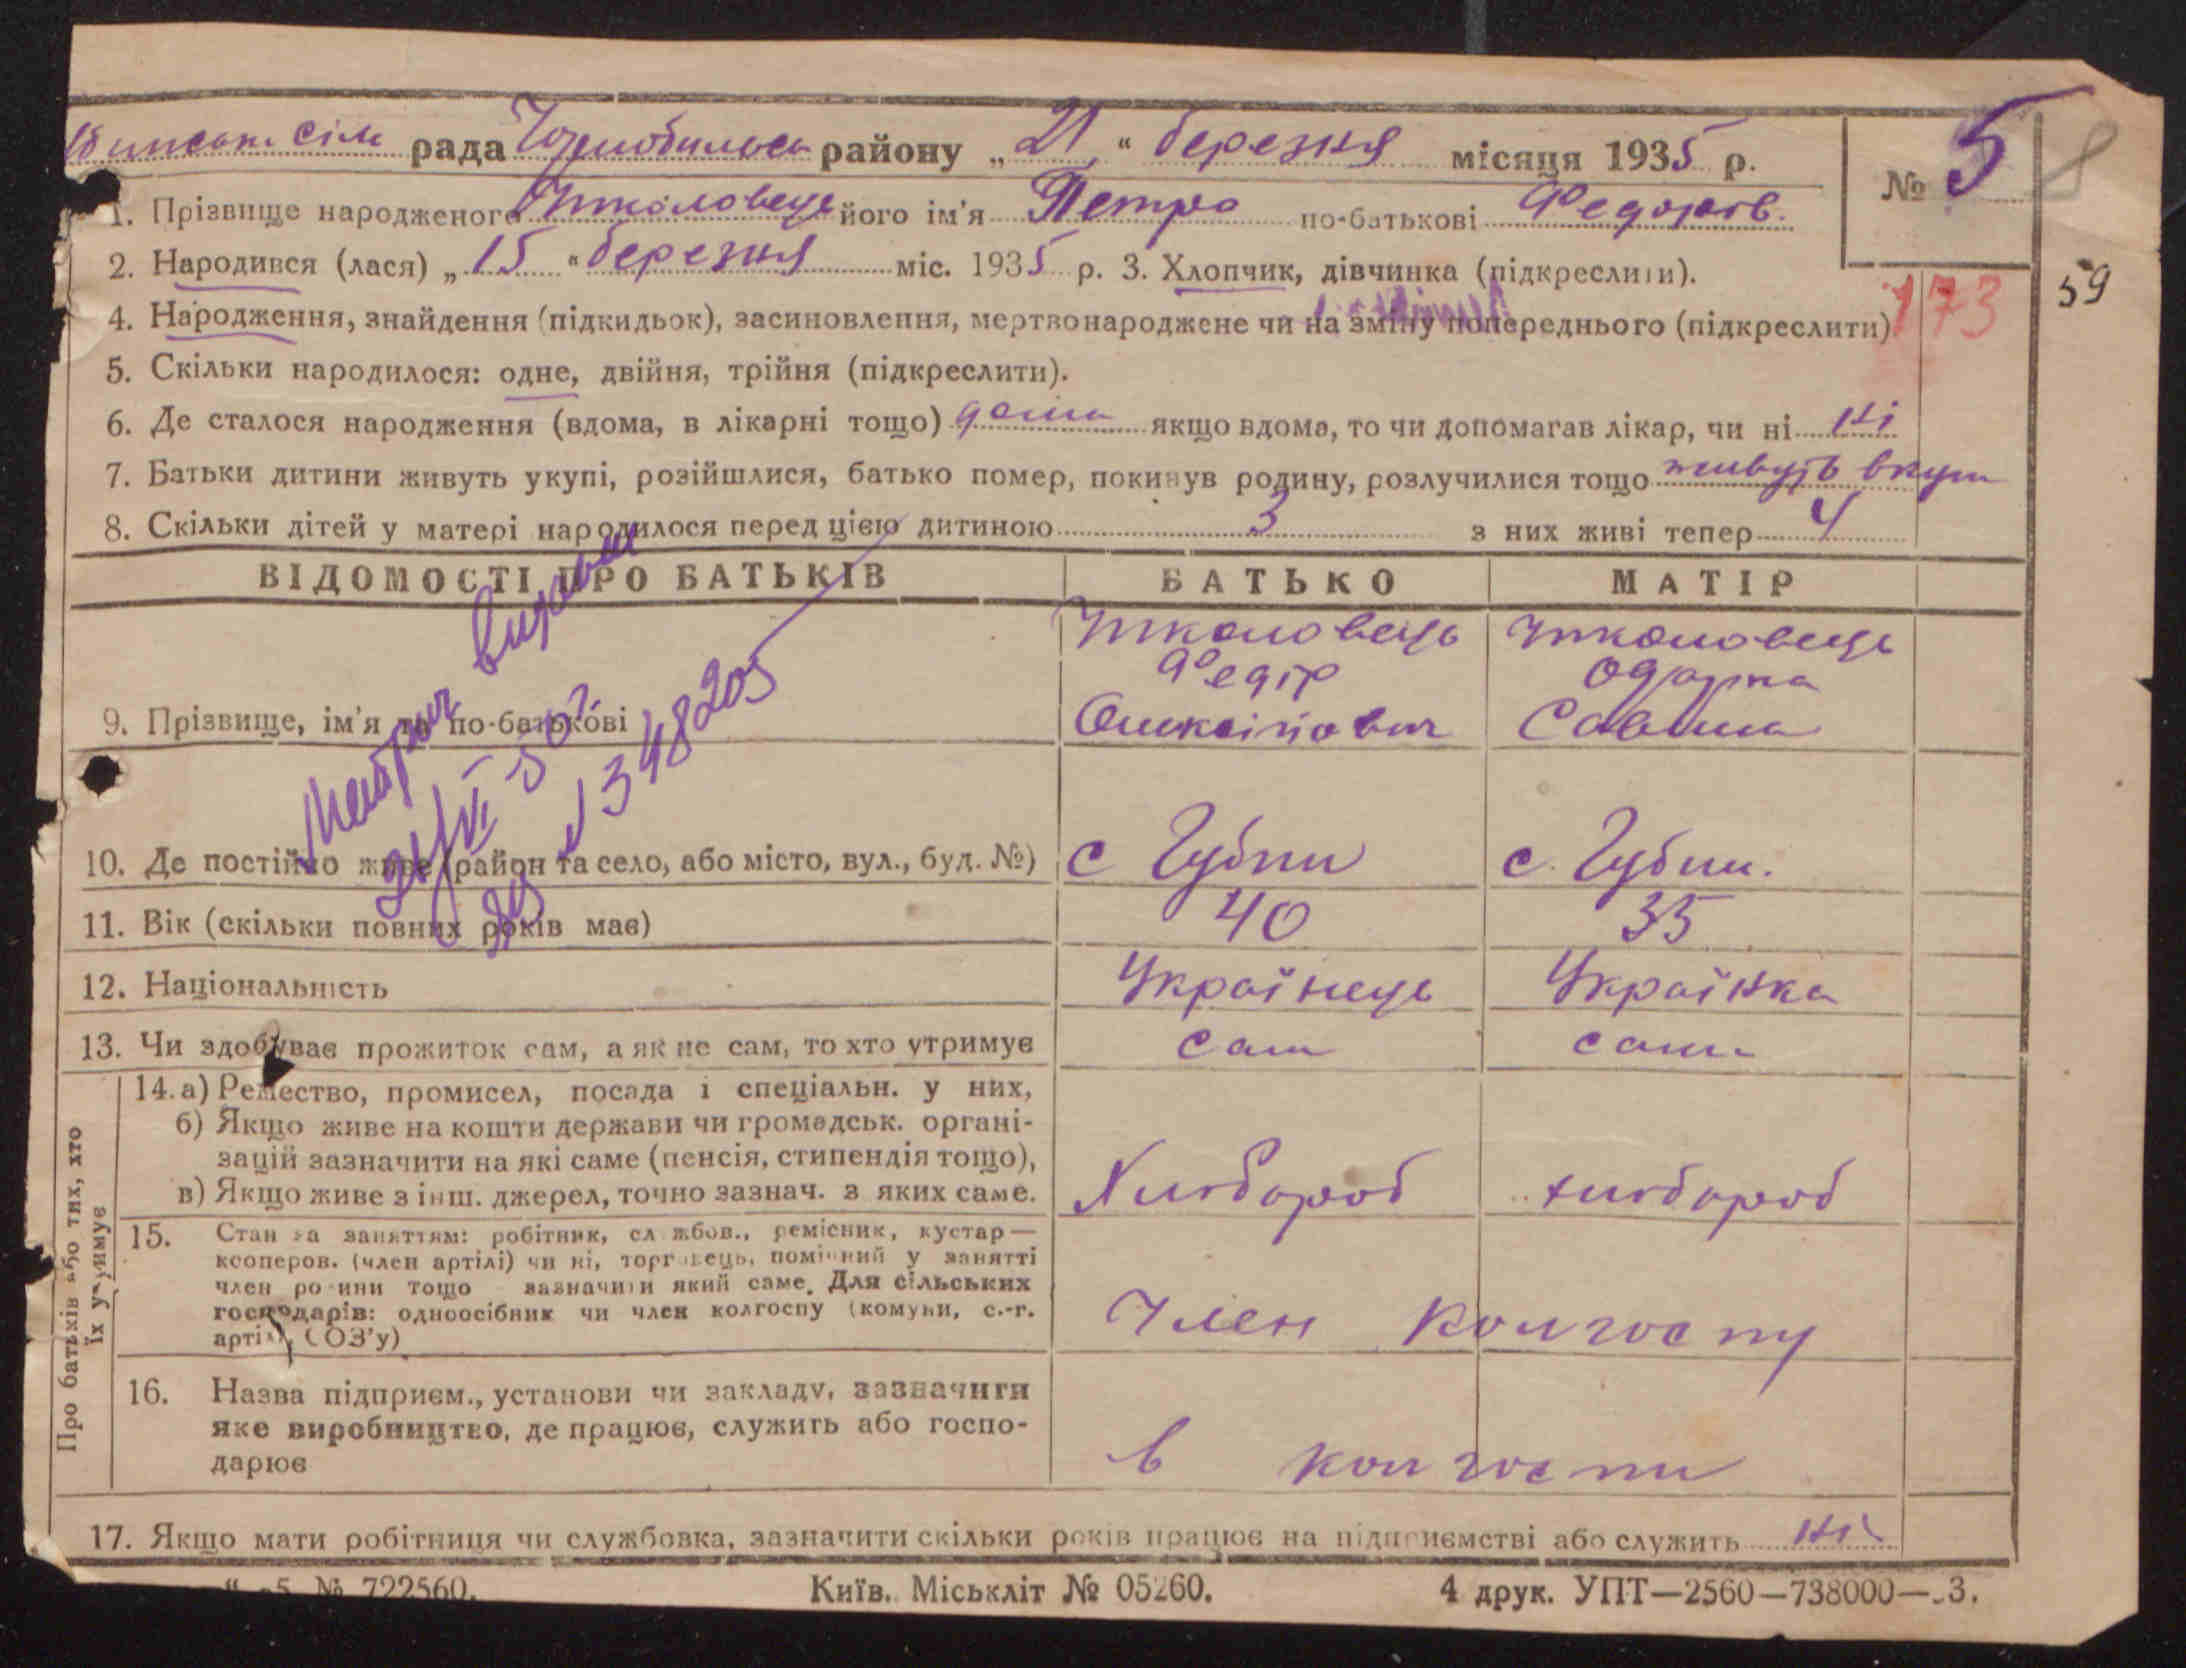 сіль рада Чорнобильськ району „ 21 “ березня місяця 1935 р.
№ 5 8
1. Прізвище народженого Школовець його ім'я Петро по-батькові Федоров.
2. Народився (лася) „ 15 “ березня міс. 1935 р. 3. Хлопчик, дівчинка (підкреслити).
173 59
4. Народження, знайдення (підкидьок), засиновлення, мертвонароджене чи на зміну попереднього (підкреслити)
5. Скільки народилося: одне, двійня, трійня (підкреслити).
6. Де сталося народження (вдома, в лікарні тощо) дома якщо вдома, то чи допомагав лікар, чи ні ні
7. Батьки дитини живуть укупі, розійшлися, батько помер, покинув родину, розлучилися тощо живуть вкупі
8. Скільки дітей у матері народилося перед цією дитиною 3 з них живі тепер 4
ВІДОМОСТІ ПРО БАТЬКІВ БАТЬКО МАТІР
Школовець Школовець
Федір Одарка
9. Прізвище, ім'я та по-батькові Олексійович Савовна
Метрич видани
21/VI 50
348205
10. Де постійно живе (район та село, або місто, вул., буд. №) с Губин с. Губин.
11. Вік (скільки повних років має) 40 35
12. Національність Українець Українка
13. Чи здобуває прожиток сам, а як не сам, то хто утримує сам сама
Про батьків або тих, хто
їх утримує
14. а) Ремество, промисел, посада і спеціальн. у них,
б) Якщо живе на кошти держави чи громадськ. органі-
зацій зазначити на які саме (пенсія, стипендія тощо),
в) Якщо живе з інш. джерел, точно зазнач. з яких саме. Хлібороб хлібороб
15. Стан за заняттям: робітник, службов., ремісник, кустар —
кооперов. (член артілі) чи ні, торговець, помічний у занятті
член родини тощо зазначити який саме. Для сільських
господарів: одноосібник чи член колгоспу (комуни, с.-г.
артілі, СОЗ'у) Член колгоспу
16. Назва підприєм., установи чи закладу, зазначити
яке виробництво, де працює, служить або госпо-
дарює в колгоспи
17. Якщо мати робітниця чи службовка, зазначити скільки років працює на підприємстві або служить ні
№ 722560. Київ. Міськліт № 05260. 4 друк. УПТ—2560—738000— 3.